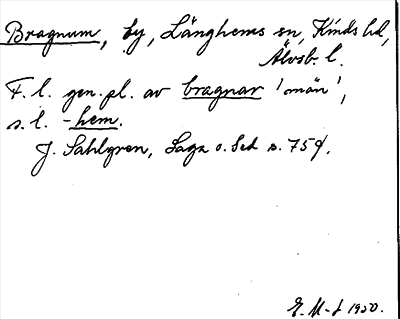 Bragnum, by, Länghems sn, Kinds hd,
Älvsb. l.
F. l. gen. pl. av bragnar 'män',
s. l. -hem.
J. Sahlgren, Saga o. Sed s. 75 f.
E. M-t 1950.